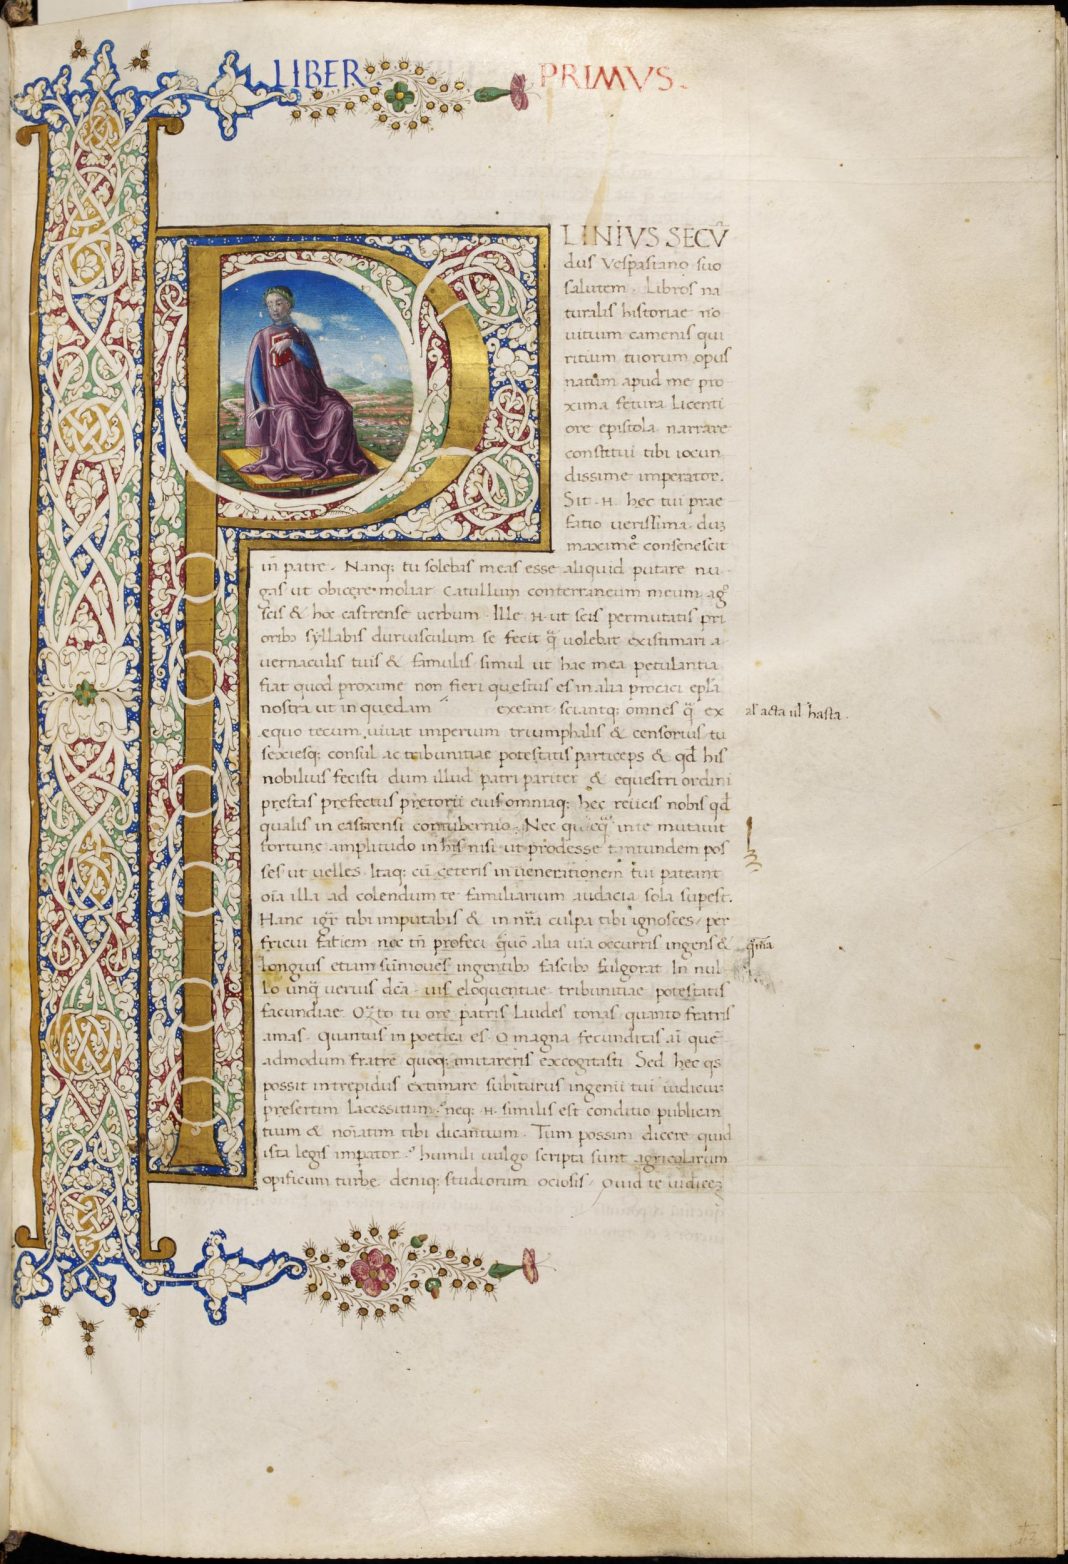 LIBER PRIMVS.
P LINIVS SECV̄
dus Vespasiano suo
salutem. Libros na
turalis historiae no
uitium camenis qui
ritium tuorum opus
natum apud me pro
xima fetura Licenti
ore epistola narrare
constitui tibi iocun
dissime imperator.
Sit .n. hec tui prae
fatio uerissima. dum
maximo consenescit
in patre. Nanq; tu solebas meas esse aliquid putare nu
gas ut obicere moliar Catullum conterraneum meum
scis & hoc castrense uerbum. Ille .n. ut scis permutatis pri
oribus syllabis duriusculum se fecit q̄ uolebat existimari a
uernaculis tuis & famulis simul ut hac mea petulantia
fiat quod proxime non fieri questus es in alia procaci epl̄a
nostra ut in quedam exeant. sciantq; omnes q̄ ex
al' acta ul' hasta.
equo tecum uiuat imperium triumphalis & censorius tu
sexiesq; consul ac tribunitiae potestatis particeps & qd his
nobilius fecisti dum illud patri pariter & equestri ordini
prestas prefectus pretorii eius omniaq; hec reiicis nobis qd
qualis in castrensi contubernio. Nec quicq̄ in te mutauit
fortune amplitudo in his nisi ut prodesse tantundem pos
ses ut uelles. Itaq; cū ceteris in uenerationem tui pateant
oīa illa ad colendum te familiarium audacia sola supest.
Hanc igr̄ tibi imputabis & in nr̄a culpa tibi ignosces. per
fricui fatiem nec tn̄ profeci quō alia uia occurris ingens &
longius etiam summoues ingentibus fascibus fulgorat In nul
lo unq̄ uerius dc̄a uis eloquentiae tribunitiae potestatis
facundiae Q̄to tu ore patris laudes tonas quanto fratris
amas. quantus in poetica es. O magna fecunditas ai que
admodum fratrē quoq; imitareris excogitasti Sed hec qs
possit intrepidus extimare subiturus ingenii tui iudiciu
presertim lacessitum neq; .n. similis est conditio publican
tium & noīatim tibi dicantium. Tum possim dicere quid
ista legis impator. humili uulgo scripta sunt agricolarum
opificum turbe. deniq; studiorum ociosis. Quid te iudicē